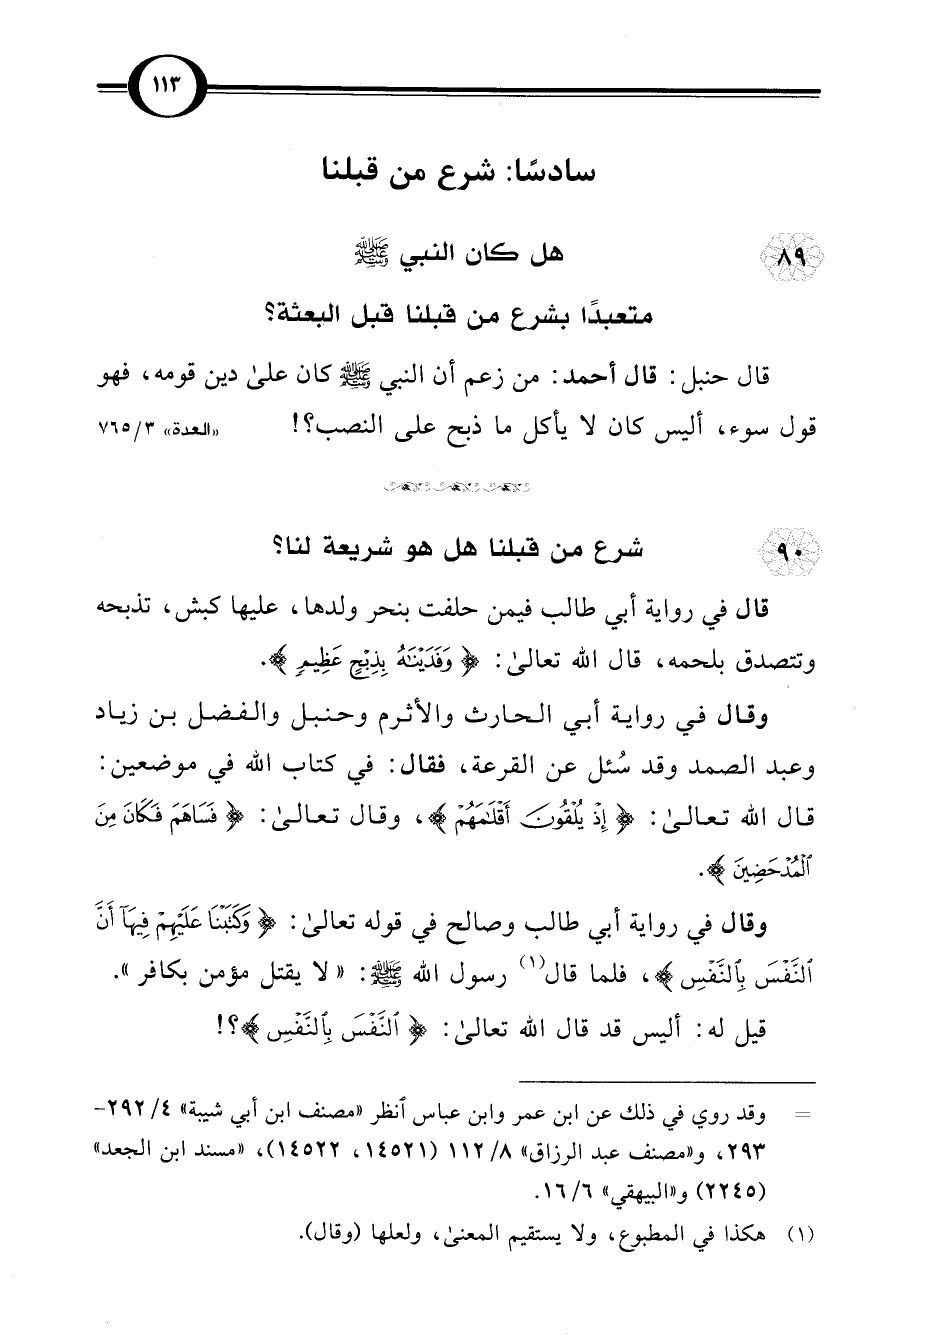 ١١٣
سادسًا: شرع من قبلنا
٨٩
هل كان النبي ﷺ
متعبدًا بشرع من قبلنا قبل البعثة؟
قال حنبل: قال أحمد: من زعم أن النبي ﷺ كان علىٰ دين قومه، فهو
قول سوء، أليس كان لا يأكل ما ذبح على النصب؟! «العدة» ٣/ ٧٦٥
٩٠
شرع من قبلنا هل هو شريعة لنا؟
قال في رواية أبي طالب فيمن حلفت بنحر ولدها، عليها كبش، تذبحه
وتتصدق بلحمه، قال الله تعالىٰ: ﴿ وَفَدَيْنَٰهُ بِذِبْحٍ عَظِيمٍ ﴾.
وقال في رواية أبي الحارث والأثرم وحنبل والفضل بن زياد
وعبد الصمد وقد سُئل عن القرعة، فقال: في كتاب الله في موضعين:
قال الله تعالىٰ: ﴿ إِذْ يُلْقُونَ أَقْلَٰمَهُمْ ﴾، وقال تعالىٰ: ﴿ فَسَاهَمَ فَكَانَ مِنَ
ٱلْمُدْحَضِينَ ﴾.
وقال في رواية أبي طالب وصالح في قوله تعالىٰ: ﴿ وَكَتَبْنَا عَلَيْهِمْ فِيهَآ أَنَّ
ٱلنَّفْسَ بِٱلنَّفْسِ ﴾، فلما قال(١) رسول الله ﷺ: « لا يقتل مؤمن بكافر ».
قيل له: أليس قد قال الله تعالىٰ: ﴿ ٱلنَّفْسَ بِٱلنَّفْسِ ﴾؟!
= وقد روي في ذلك عن ابن عمر وابن عباس ٱنظر «مصنف ابن أبي شيبة» ٤/ ٢٩٢-
٢٩٣، و«مصنف عبد الرزاق» ٨/ ١١٢ (١٤٥٢١، ١٤٥٢٢)، «مسند ابن الجعد»
(٢٢٤٥) و«البيهقي» ٦/ ١٦.
(١) هكذا في المطبوع، ولا يستقيم المعنىٰ، ولعلها (وقال).